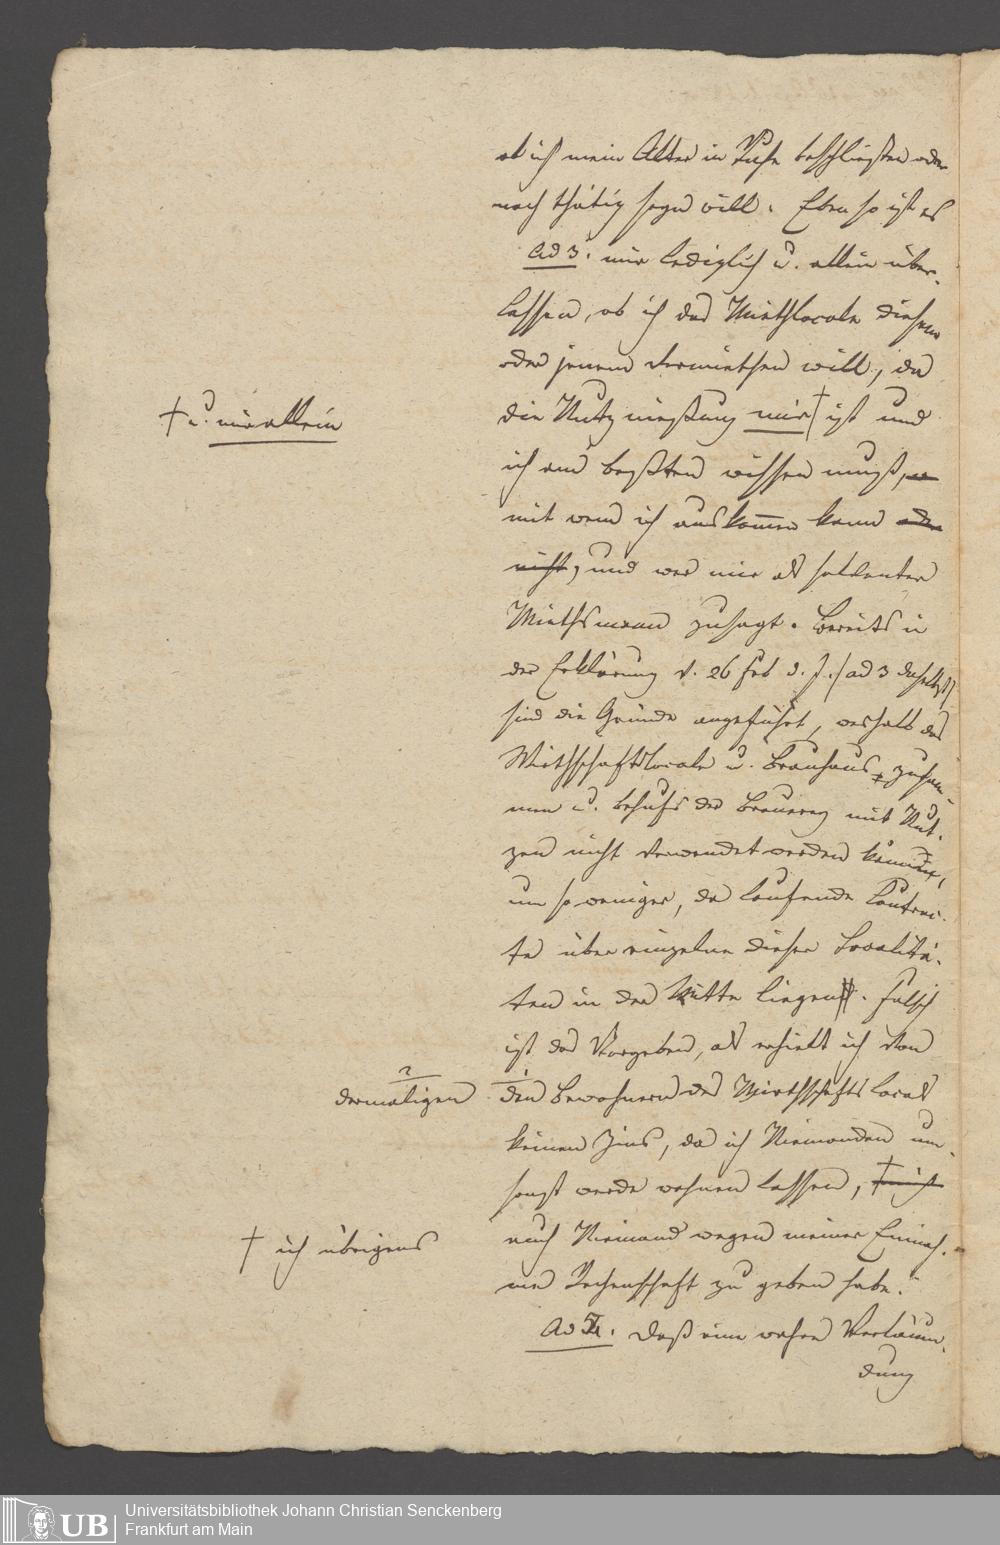 ob ich mein Alter in Ruhe beschließen oder
noch thätig seyn will. Eben so ist es
Ad 3. mir lediglich u. allein über-
lassen, ob ich das Miethlocale diesem
oder jenem vermiethen will, da
die Nutznießung mir † ist und
† u. mir allein
ich am beßten wissen muß,
mit wem ich auskommen kann oder
nicht, und wer mir als solventer
Miethsmann zusagt. Bereits in
der Erklärung v. 26 Feb d. J. (ad 3 daselbst)
sind die Gründe angeführt, weshalb das
Wirthschaftslocale u. Brauhaus zusam-
men u. behufs der Brauerey mit Nut-
zen nicht verwendet werden können,
um so weniger, da laufende Contrac-
te über einzelne dieser Localitä-
ten in der Mitte liegen. Falsch
ist das Vorgeben, als erhielt ich von
dermaligen
den Bewohnern des Wirthschafts Locals
keinen Zins, da ich Niemanden um-
sonst werde wohnen lassen, † nicht
† ich übrigens
auch Niemand wegen meiner Einnah-
me Rechenschaft zu geben habe.
Ad 4. Daß eine wahre Verläum-
dung
Universitätsbibliothek Johann Christian Senckenberg
Frankfurt am Main
UB